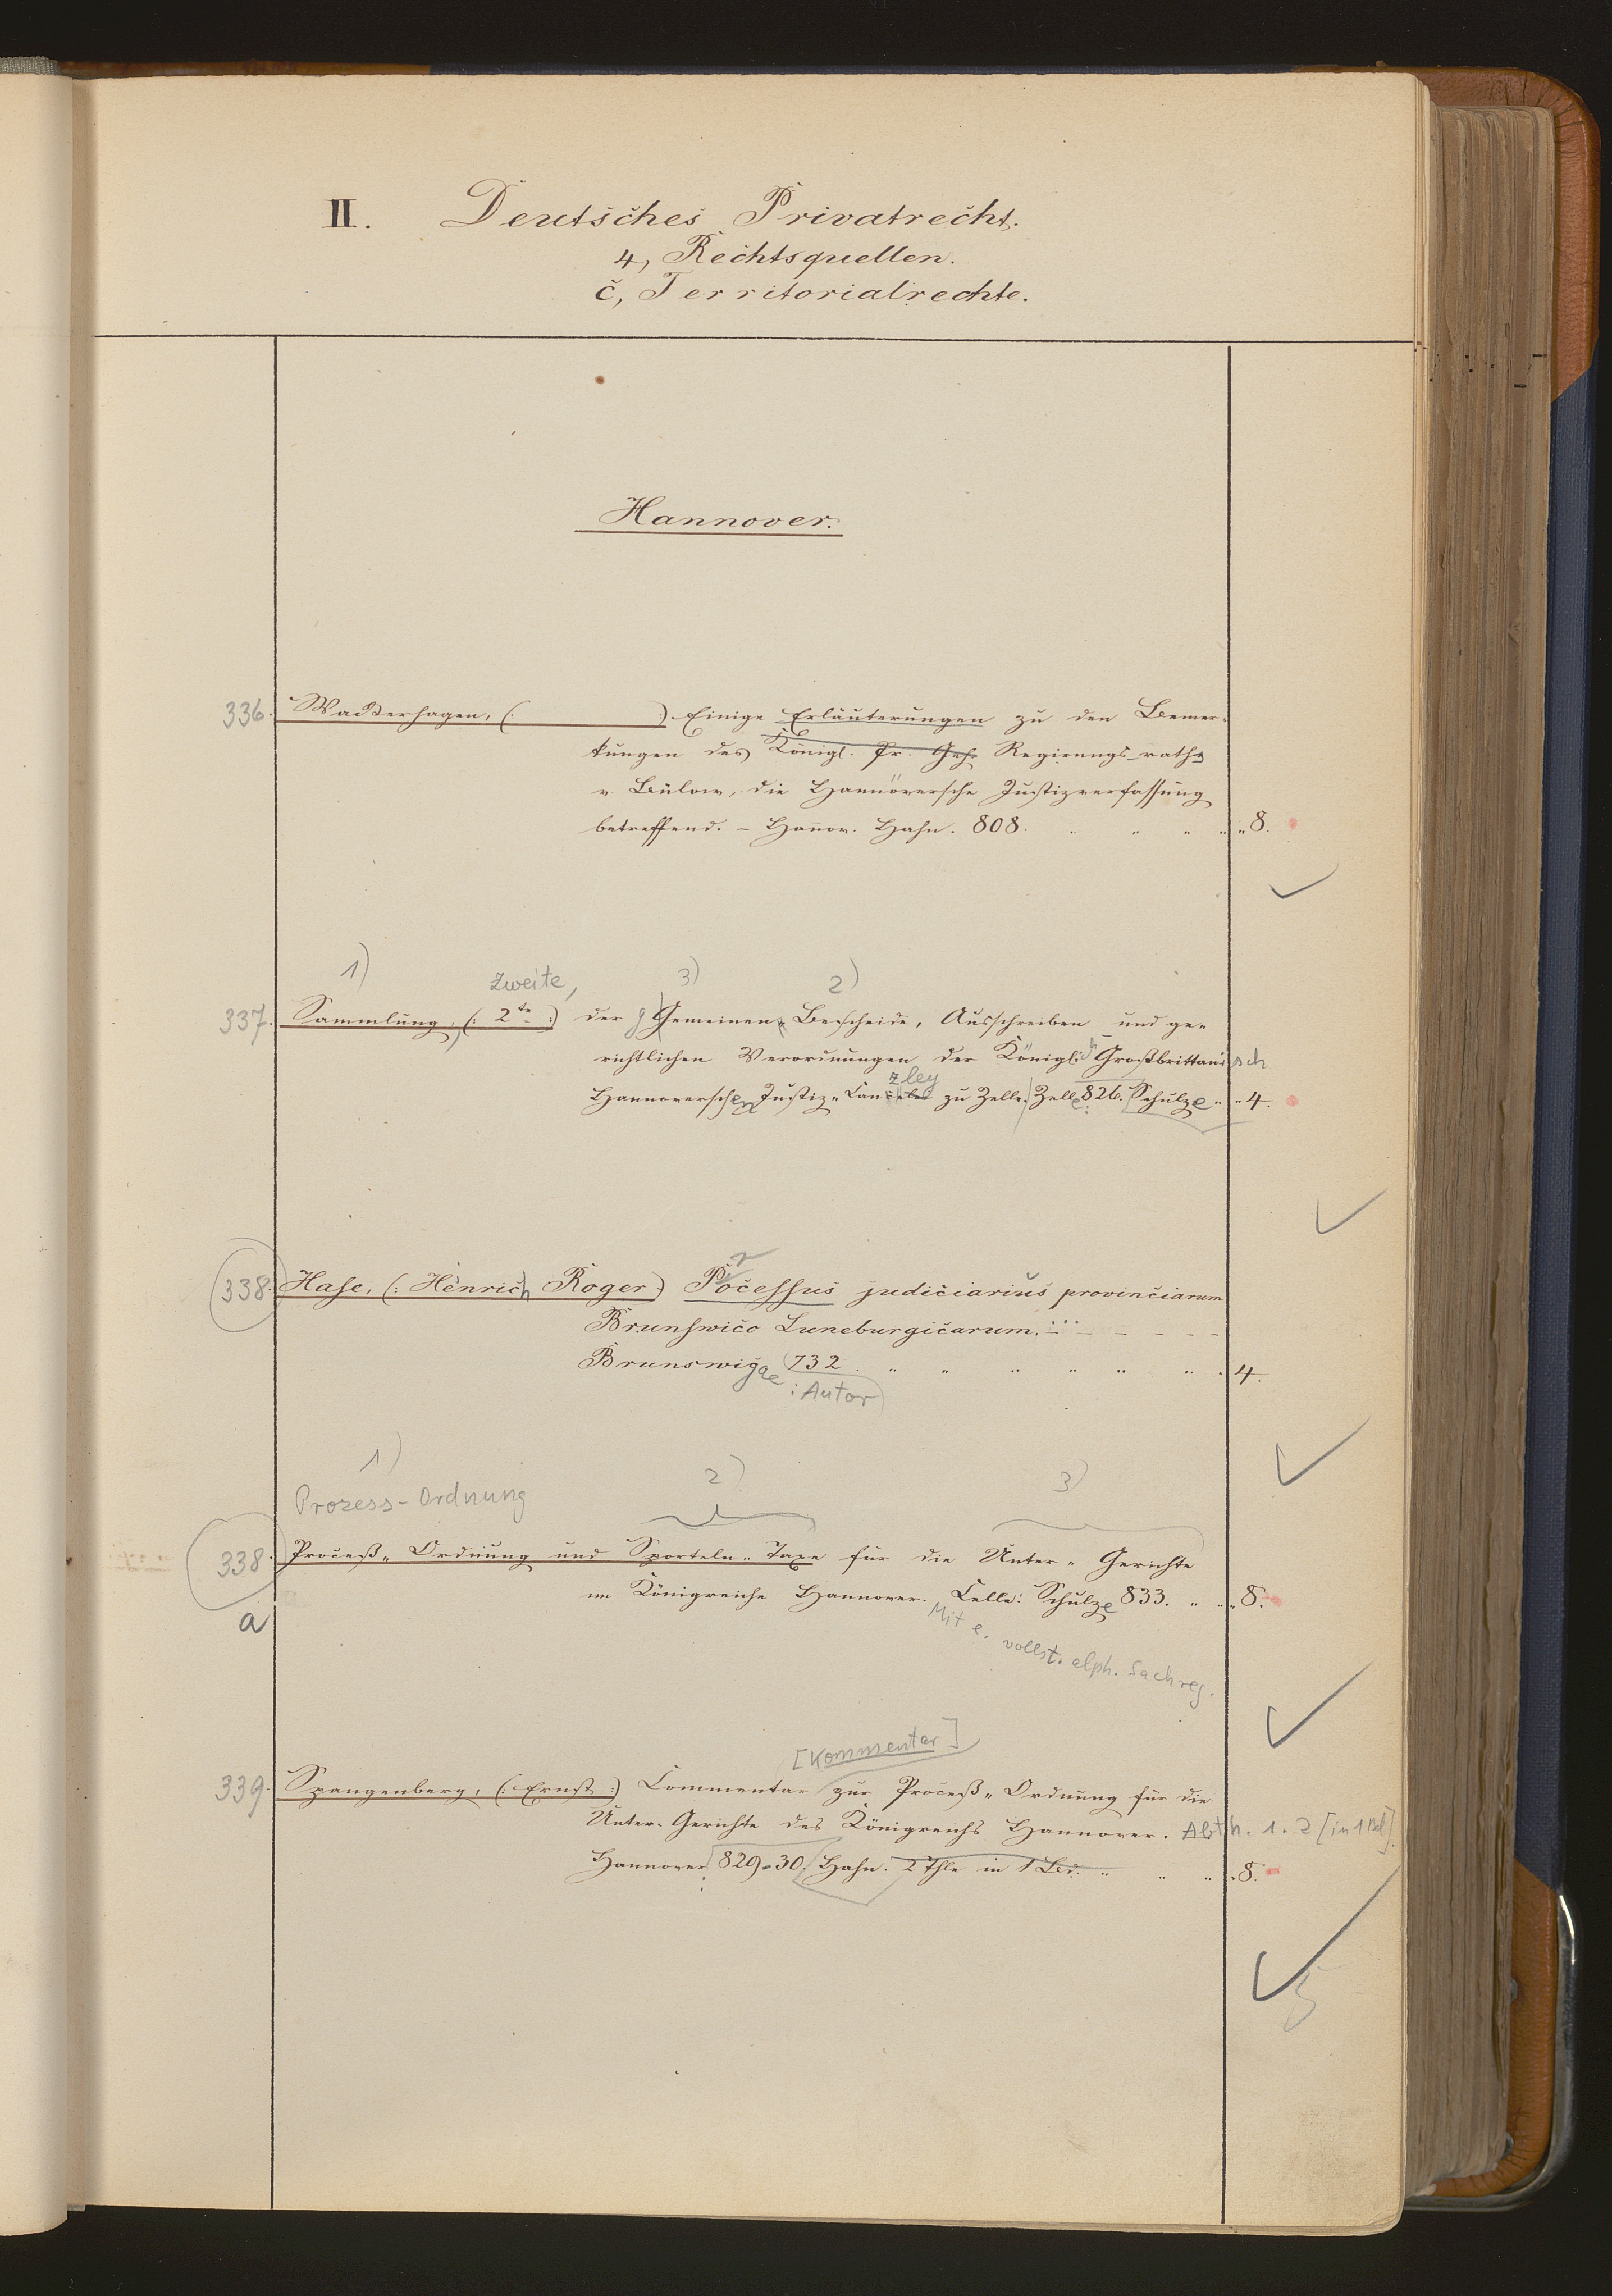 II. Deutsches Privatrecht.
4, Rechtsquellen.
c, Territorialrechte.
Hannover.
336. Wackerhagen, (: :) Einige Erläuterungen zu den Bemer-
kungen des Königl. Pr. Geh. Regierungs-raths
v. Bülow, die Hannöversche Justizverfassung
betreffend. – Hannov. Hahn. 808. 8.
1) zweite, 3) 2)
337. Sammlung, (: 2te :) der Gemeinen Bescheide, Ausschreiben und ge-
richtlichen Verordnungen der Königl. Großbrittani sch
zley
Hannoverschen Justiz-Can zu Zelle. Zelle 826. Schulze 4.
338. Hase, (: Henrich Roger) Pocessus judiciarius provinciarum
r
Brunswico Luneburgicarum.
Brunswigae 732. 4.
: Autor
1) 2) 3)
Prozess-Ordnung
338. Proceß-Ordnung und Sporteln-Taxe für die Unter-Gerichte
a im Königreiche Hannover. Celle: Schulze 833. 8.
Mit e. vollst. alph. Sachreg.
[Kommentar]
339. Spangenberg, (: Ernst :) Commentar zur Proceß-Ordnung für die
Unter-Gerichte des Königreichs Hannover. Abth. 1. 2 [in 1 Bd]
Hannover 829-30. Hahn. 2 Thle in 1 Bd. 8.